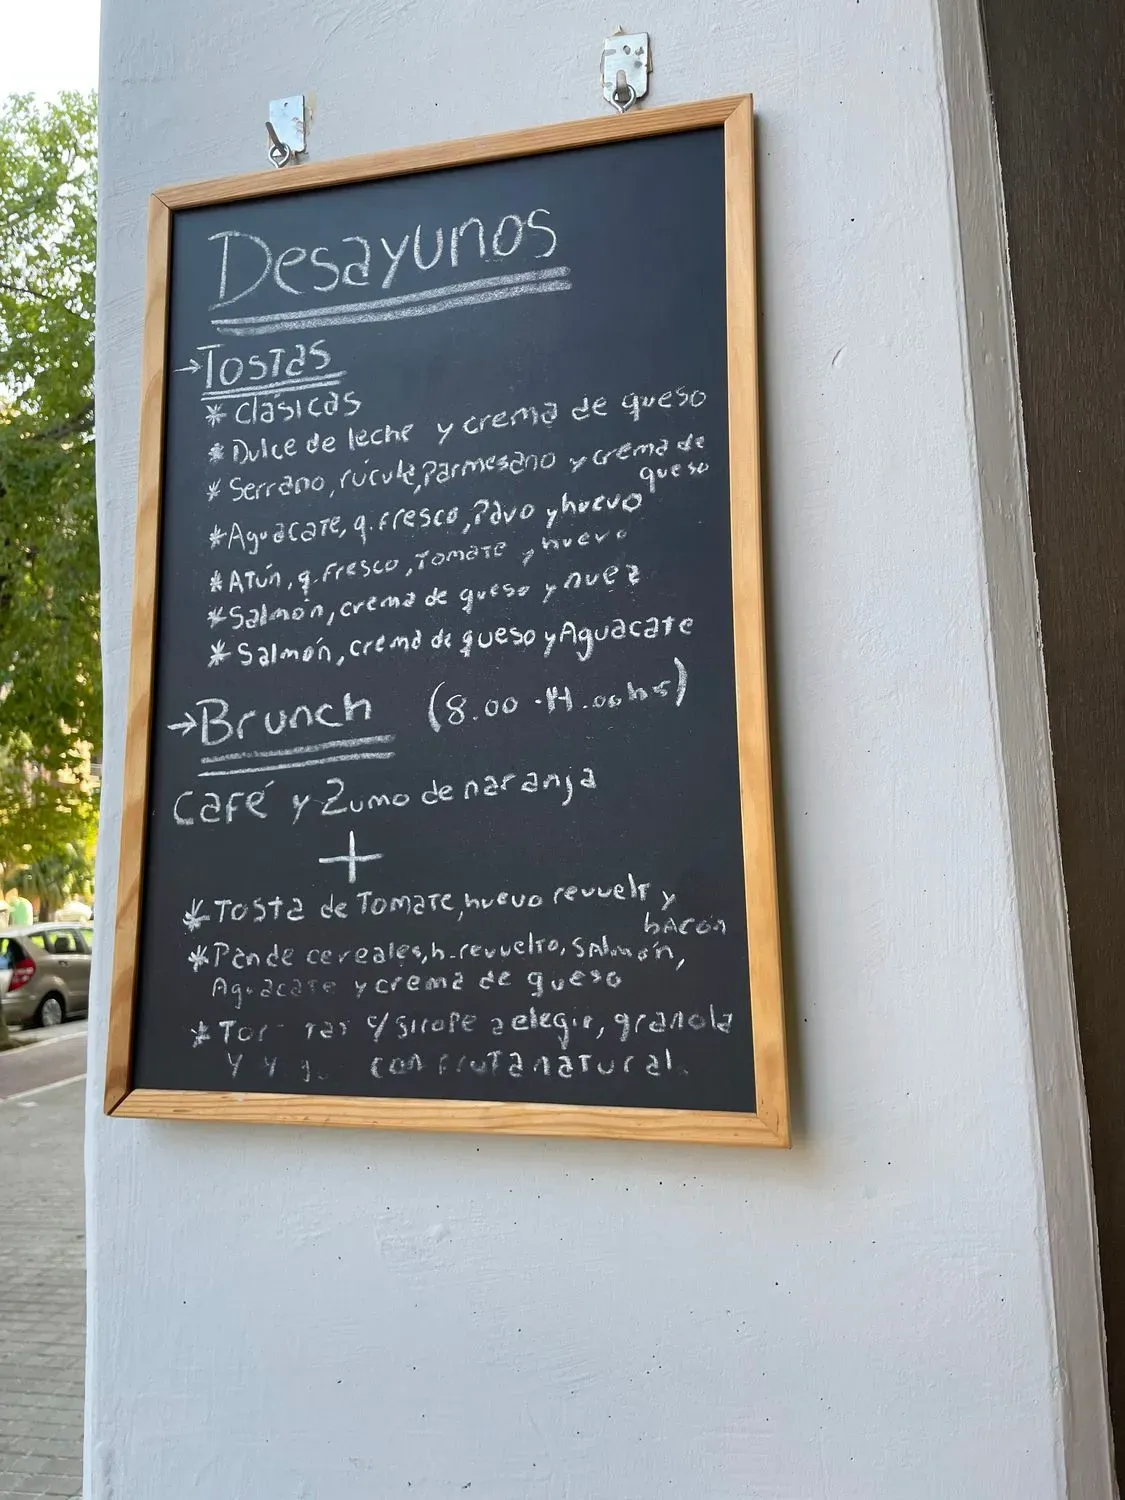 Desayunos
→Tostas
* clásicas
* Dulce de leche y crema de queso
* Serrano, rúcula, Parmesano y crema de
queso
* Aguacate, q. fresco, Pavo y huevo
* Atún, q. fresco, Tomate y huevo
* Salmón, crema de queso y nuez
* Salmón, crema de queso y Aguacate
→Brunch (8.00 hs)
Café y Zumo de naranja
+
* Tosta de Tomate, huevo revuelt y
bacon
* Pan de cereales, h. revuelto, Salmón,
Aguacate y crema de queso
* c/ sirope a elegir, granola
y con fruta natural.